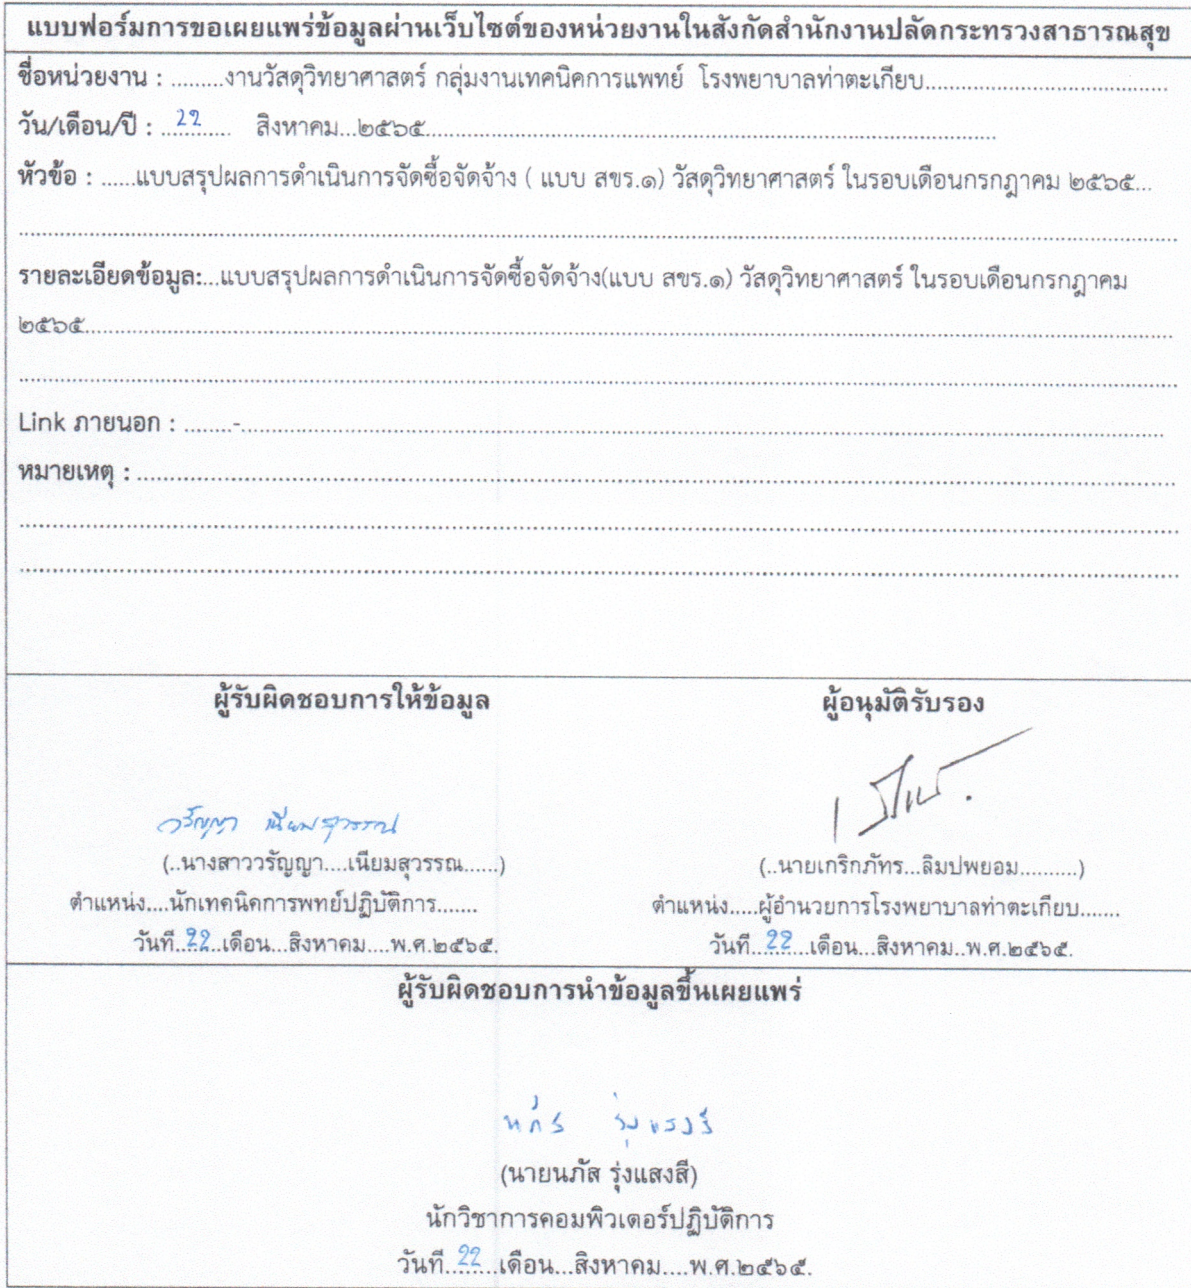 แบบฟอร์มการขอเผยแพร่ข้อมูลผ่านเว็บไซต์ของหน่วยงานในสังกัดสำนักงานปลัดกระทรวงสาธารณสุข
ชื่อหน่วยงาน : .........งานวัสดุวิทยาศาสตร์ กลุ่มงานเทคนิคการแพทย์ โรงพยาบาลท่าตะเกียบ..........................................
วัน/เดือน/ปี : ...22...... สิงหาคม...๒๕๖๕...................................................................................................
หัวข้อ : ......แบบสรุปผลการดำเนินการจัดซื้อจัดจ้าง ( แบบ สขร.๑) วัสดุวิทยาศาสตร์ ในรอบเดือนกรกฎาคม ๒๕๖๕...
รายละเอียดข้อมูล:...แบบสรุปผลการดำเนินการจัดซื้อจัดจ้าง(แบบ สขร.๑) วัสดุวิทยาศาสตร์ ในรอบเดือนกรกฎาคม
๒๕๖๕..........................................................................................
Link ภายนอก : ........-..........................................................................................
หมายเหตุ : ..........................................................................................
ผู้รับผิดชอบการให้ข้อมูล
ผู้อนุมัติรับรอง
วรัญญา เนียมสุวรรณ
(..นางสาววรัญญา....เนียมสุวรรณ......)
(..นายเกริกภัทร...ลิมปพยอม..........)
ตำแหน่ง....นักเทคนิคการพทย์ปฏิบัติการ.......
ตำแหน่ง.....ผู้อำนวยการโรงพยาบาลท่าตะเกียบ.......
วันที่..22..เดือน...สิงหาคม....พ.ศ.๒๕๖๕.
วันที่...22....เดือน...สิงหาคม..พ.ศ.๒๕๖๕.
ผู้รับผิดชอบการนำข้อมูลขึ้นเผยแพร่
นภัส รุ่งแสงสี
(นายนภัส รุ่งแสงสี)
นักวิชาการคอมพิวเตอร์ปฏิบัติการ
วันที่..22...เดือน...สิงหาคม....พ.ศ.๒๕๖๕.